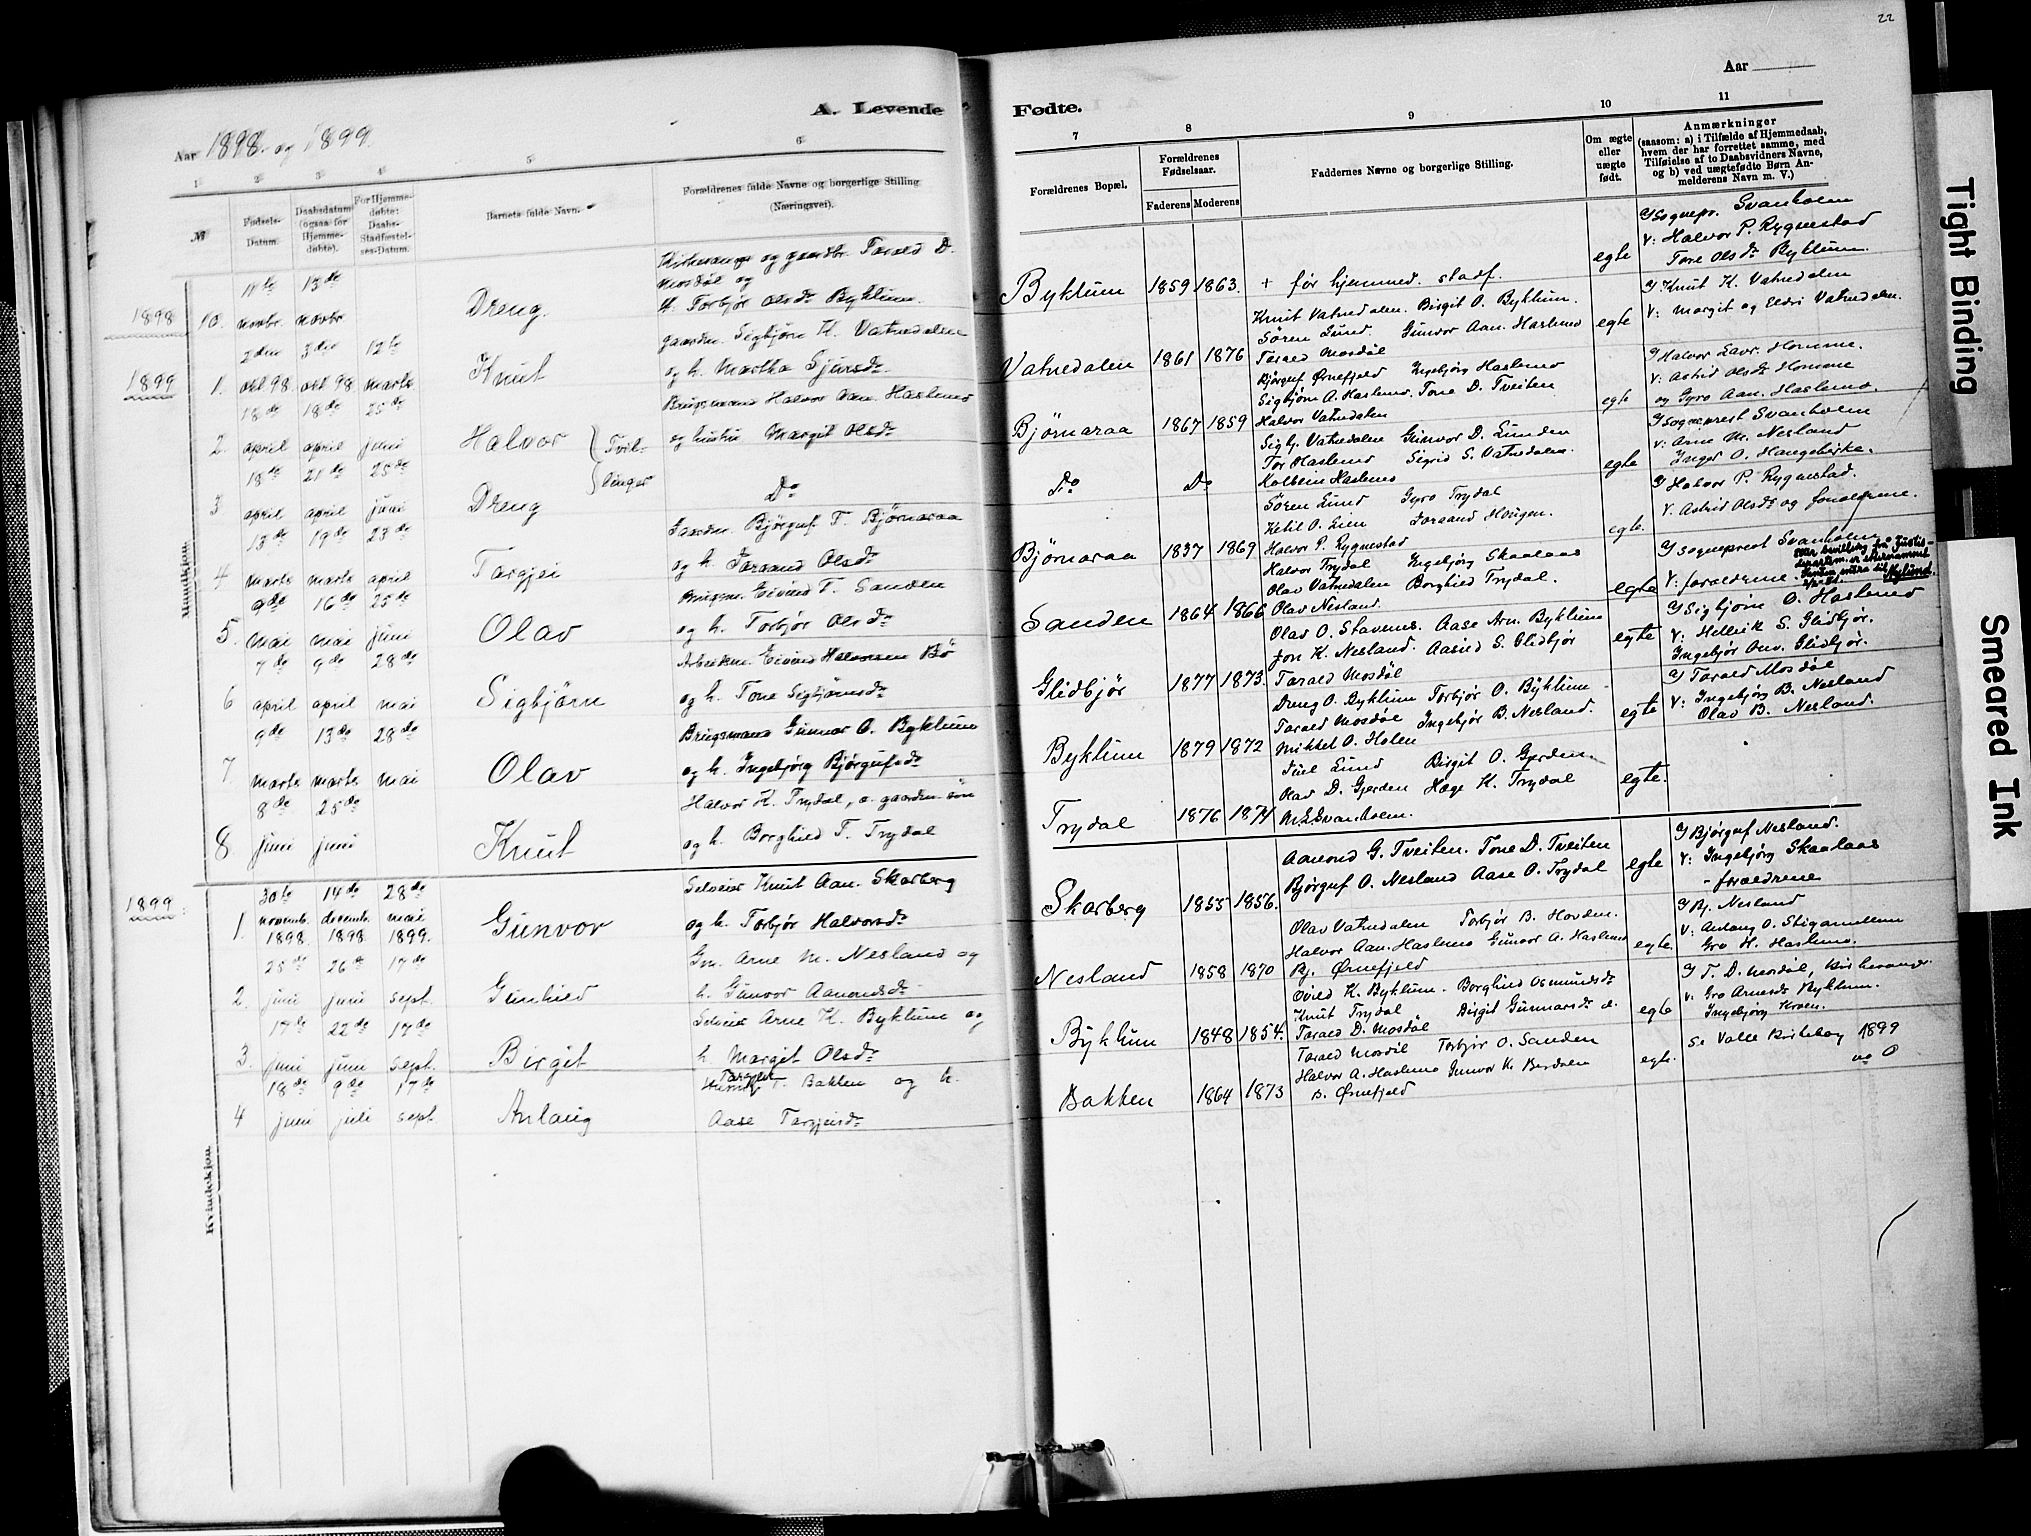 22
A. Levende Fødte.
Aar 1898 og 1899.
Aar
1 2 3 4 5 6 7 8 9 10 11
№
Fødsels-Datum.
Daabsdatum (ogsaa for Hjemme-døbte).
For Hjemme-døbte: Daabs-Stadfæstel-ses-Datum.
Barnets fulde Navn.
Forældrenes fulde Navne og borgerlige Stilling (Næringsvei).
Forældrenes Bopæl.
Forældrenes Fødselsaar.
Faderens Moderens
Faddernes Navne og borgerlige Stilling.
Om ægte eller uægte født.
Anmærkninger
(saasom: a) i Tilfælde af Hjemmedaab, hvem der har forrettet samme, med Tilføielse af to Daabsvidners Navne, og b) ved uægtefødte Børn Anmelderens Navn m. V.)
Mandkjøn.
1898 10. 11te novbr. 13de novbr Dreng.
Kirkesanger og gaardbr. Tarald D. Mosdøl og
h. Torbjør Olsdr Byklum.
Byklum 1859 1863. + før hjemmed. stadf. egte
I sognepr. Svanholm
V: Halvor P. Rygnestad
Tore Olsdr Byklum.
1899 1. 2den okt 98. 3die okt 98 12te marts Knut
gaardm. Sigbjørn K. Vatnedalen
og h. Martha Sjursdr
Vatnedalen 1861 1876
Knut Vatnedalen. Birgit O. Byklum.
Søren Lund. Gunvor Aan. Haslemo
Tarald Mosdøl
egte
I Knut K. Vatnedalen
V: Margit og Eldri Vatnedalen.
2 13de april 18de april 25de juni Halvor } Tvil-
Brugsmand Halvor Aan. Haslemo
og hustru Margit Olsdr
Bjørnaraa 1867 1859
Bjørguf Ørnefjeld Ingebjørg Haslemo
Sigbjørn A. Haslemo. Tone D. Tveiten
Halvor Vatnedalen
egte
I Halvor Lavr. Homme.
V: Astrid Olsdr Homme
og Gyro Aan. Haslemo.
3 18de april 21de april 25de juni Dreng } linger
Do
Do Do
Sigbj. Vatnedalen Gunvor D. Lunden
Tor Haslemo Sigrid S. Vatnedalen.
Kolbein Haslemo
egte
I sogneprest Svanholm
V: Arne M. Nesland
Inger O.
4 13de marts 19de marts 23de april Targjei
Gaardm. Bjørguf T. Bjørnaraa
og h. Jøraand Olsdr
Bjørnaraa 1837 1869
Søren Lund Gyro Trydal
Ketil O. Lien Jøraand Hougen.
Halvor P. Rygnestad
egte
I Halvor P. Rygnestad.
V: Astrid Olsdr og forældrene.
5 9de mai 16de mai 25de juni Olav
Brugsm. Eivind T. Sanden
og h. Torbjør Olsdr
Sanden 1864 1866
Halvor Trydal Ingebjørg Skaalaas
Olav Vatnedalen Borghild Trydal.
Olav Nesland.
egte
I sogneprest Svanholm
V: forældrene. Nylund.
6 7de april 9de april 28de mai Sigbjørn
Arbeidsm. Eivind Halvorsen Bø
og h. Tone Sigbjørnsdr
Glidbjør 1877 1873.
Olav O. Stavenes. Aase Arn. Byklum
Jon K. Nesland. Aasne S. Glidbjør
Tarald Mosdøl
egte
I Sigbjørn O. Haslemo
V: Hellrik S. Glidbjør.
Ingebjør Glidbjør.
7 9de marts 13de marts 28de mai Olav
Brugsmand Gunnar O. Byklum
og h. Ingebjørg Bjørgufsdr
Byklum 1879 1872
Dreng O. Byklum Torbjør O. Byklum
Tarald Mosdøl Ingebjør B. Nesland.
Mikkel O. Holen
egte
I Tarald Mosdøl
V: Ingebjørg B. Nesland
Olav B. Nesland.
8. 8de juni 25de juni Knut
Halvor K. Trydal, gaardm. søn
og h. Borghild T. Trydal
Trydal 1876 1874
Juel Lund Birgit O. Gjerden.
Olav D. Gjerden Hæge K. Trydal
M. L. Svanholm.
egte.
Kvindekjøn.
1899: 1. 30te novemb. 1898. 14de decemb. 1898 28de mai 1899. Gunvor
Selveier Knut Aan. Skarberg
og h. Torbjør Halvorsdr
Skarberg 1855 1856.
Aanond G. Tveiten. Tone D. Tveiten
Bjørguf O. Nesland Aase O. Trydal
egte
I Bjørguf Nesland.
V: Ingebjørg Skaalaas
- forældrene
2. 25de juni 26de juni 17de sept. Gunhild
Gm. Arne M. Nesland og
h. Gunvor Aanondsdr
Nesland 1858 1870
Olav Vatnedalen Torbjør B. Hovden.
Halvor Aan. Haslemo Gunvor A. Haslemo
Bj. Ørnefjeld
egte
I Bj. Nesland
V: Anlaug O. Stigamillem
Gro H. Haslemo.
3. 17de juni 22de juni 17de sept. Birgit
Selveier Arne K. Byklum og
h. Margit Olsdr
Byklum 1848 1854.
Øvild K. Byklum. Borghild Osmundsdr
Knut Trydal Birgit Gunnarsdr
Tarald D. Mosdøl
egte
I T. D. Mosdøl, kirkesanger
V: Gro Arnesdr Byklum.
Ingebjørg Hoven.
4 18de juni 9de juli 17de sept. Anlaug
Targjei T. Bakken og h.
Aase Targjeisdr
Bakken 1864 1873
Tarald Mosdøl Torbjør O. Sanden
Halvor A. Haslemo Gunvor K. Berdalen
B. Ørnefjeld
egte.
Se Valle Kirkebog 1899
Tight Binding
Smeared Ink